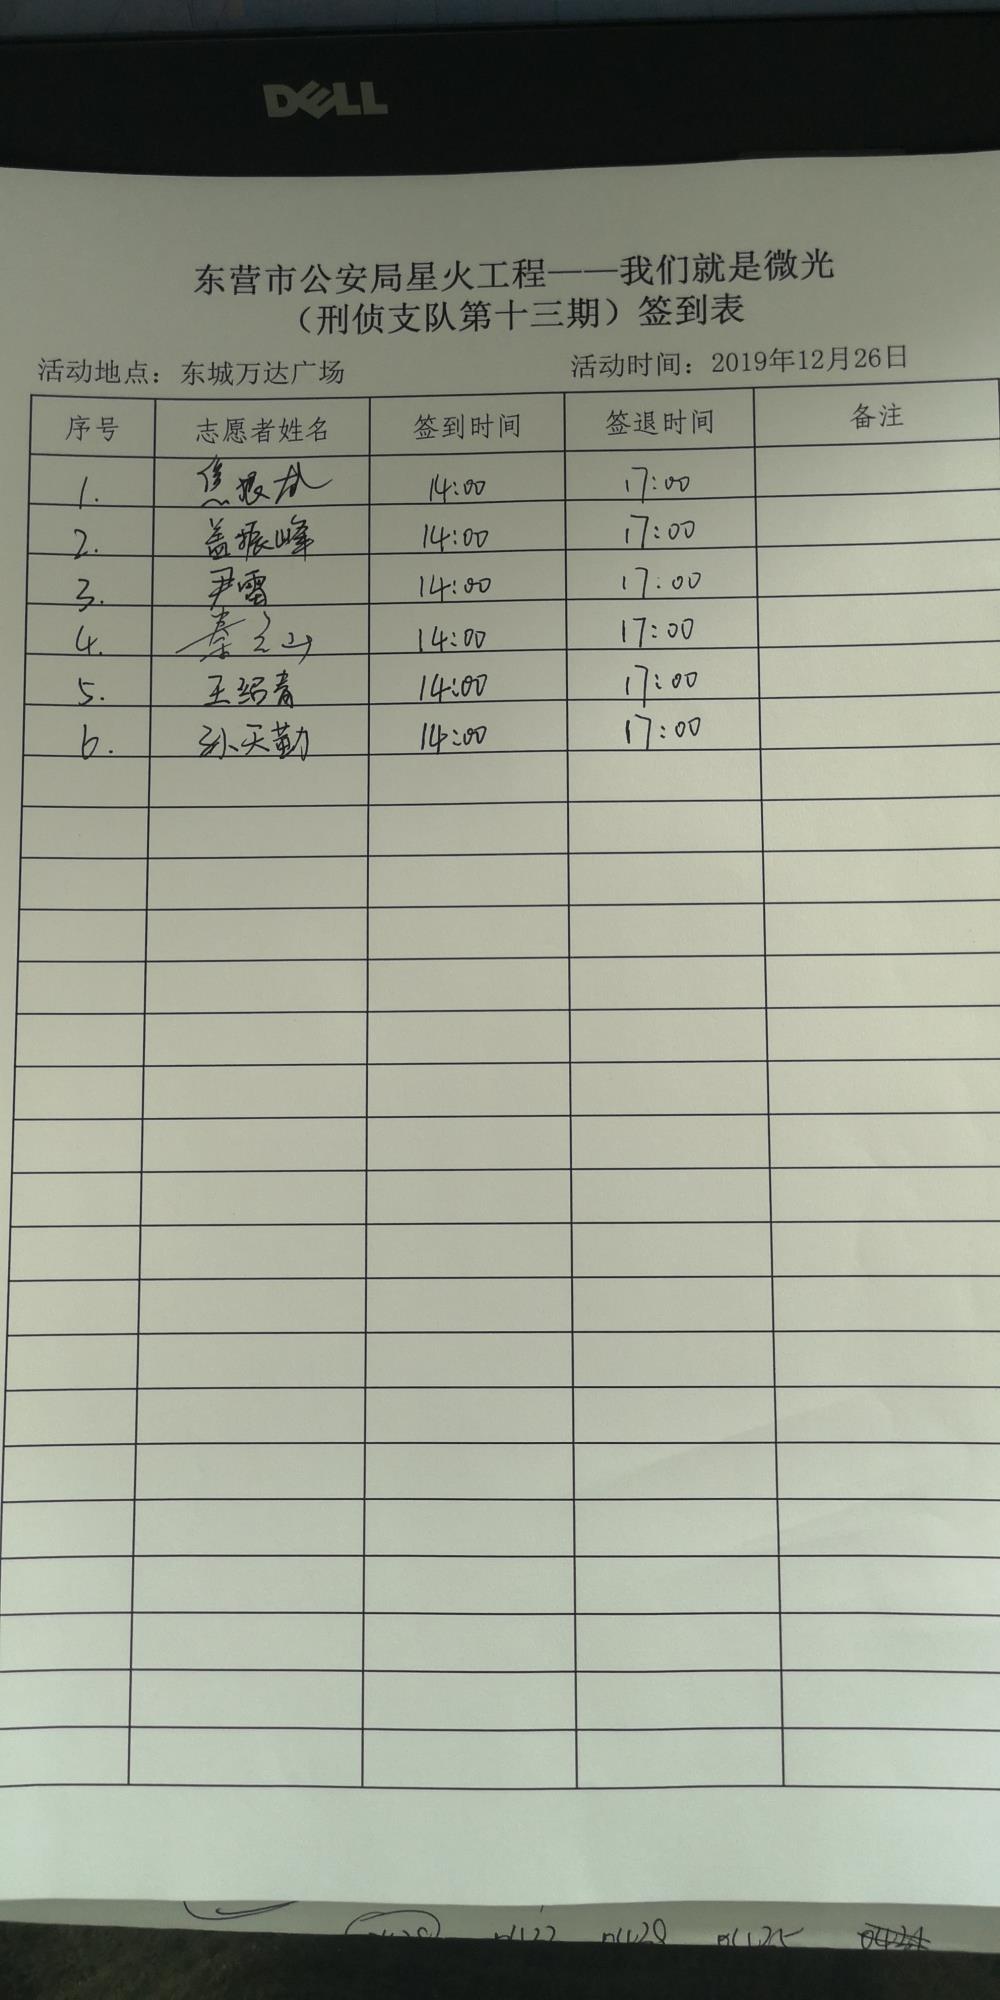 DELL
东营市公安局星火工程——我们就是微光
（刑侦支队第十三期）签到表
活动地点：东城万达广场 活动时间：2019年12月26日
序号 志愿者姓名 签到时间 签退时间 备注
1. 14:00 17:00
2. 盖振峰 14:00 17:00
3. 尹雷 14:00 17:00
4. 14:00 17:00
5. 王绍青 14:00 17:00
6. 孙天勤 14:00 17:00